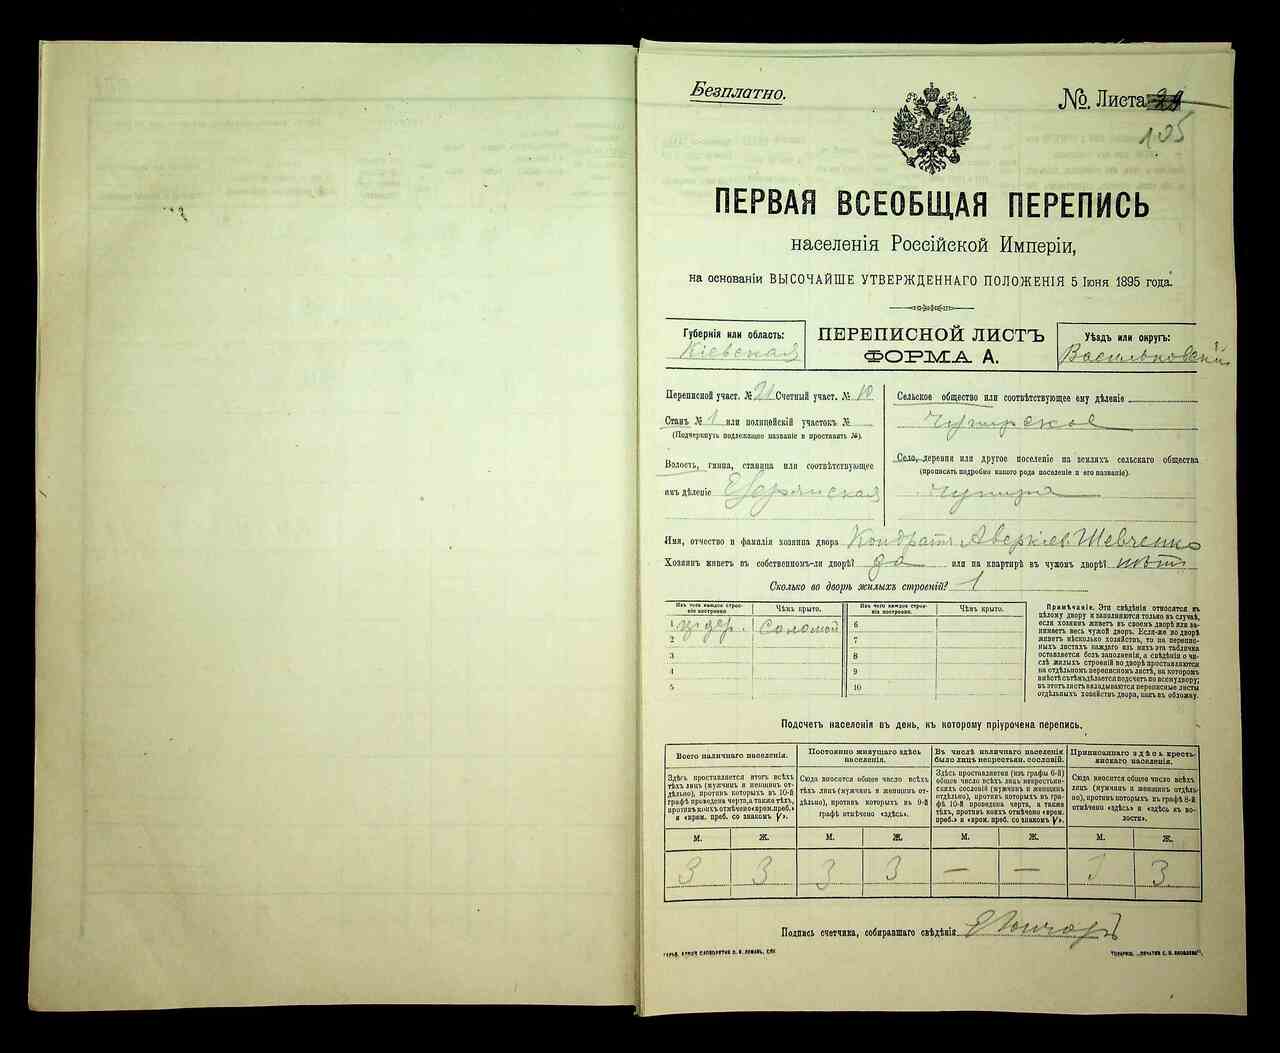 Безплатно.
№. Листа
105
ПЕРВАЯ ВСЕОБЩАЯ ПЕРЕПИСЬ
населенія Россійской Имперіи,
на основаніи ВЫСОЧАЙШЕ УТВЕРЖДЕННАГО ПОЛОЖЕНІЯ 5 Іюня 1895 года.
Губернія или область:
Кіевская
ПЕРЕПИСНОЙ ЛИСТЪ
ФОРМА А.
Уѣздъ или округъ:
Васильковскій
Переписной участ. № 21 Счетный участ. № 10
Станъ № 1 или полицейскій участокъ №
(Подчеркнуть подлежащее названіе и проставить №).
Волость, гмина, станица или соотвѣтствующее
имъ дѣленіе
Сельское общество или соотвѣтствующее ему дѣленіе
Село, деревня или другое поселеніе на земляхъ сельскаго общества
(прописать подробно какого рода поселеніе и его названіе).
Имя, отчество и фамилія хозяина двора Кондратъ Аверкіев Шевченко
Хозяинъ живетъ въ собственномъ-ли дворѣ? да или на квартирѣ въ чужомъ дворѣ? нѣтъ
Сколько во дворѣ жилыхъ строеній? 1
Изъ чего каждое строеніе построено Чѣмъ крыто. Изъ чего каждое строеніе построено Чѣмъ крыто.
1 дер. соломой 6
2 7
3 8
4 9
5 10
Примѣчаніе. Эти свѣдѣнія относятся къ
цѣлому двору и заполняются только въ случаѣ,
если хозяинъ живетъ въ своемъ дворѣ или за-
нимаетъ весь чужой дворъ. Если-же во дворѣ
живетъ нѣсколько хозяйствъ, то на перепис-
ныхъ листахъ каждаго изъ нихъ эта табличка
оставляется безъ заполненія, а свѣдѣнія о чи-
слѣ жилыхъ строеній во дворѣ проставляются
на отдѣльномъ переписномъ листѣ, на которомъ
вмѣстѣ съ тѣмъ дѣлается подсчетъ по всему двору;
въ этотъ листъ вкладываются переписные листы
отдѣльныхъ хозяйствъ двора, какъ въ обложку.
Подсчетъ населенія въ день, къ которому пріурочена перепись.
Всего наличнаго населенія.
Здѣсь проставляется итогъ всѣхъ
тѣхъ лицъ (мужчинъ и женщинъ от-
дѣльно), противъ которыхъ въ 10-й
графѣ проведена черта, а также тѣхъ,
противъ коихъ отмѣчено «врем. преб.»
и «врем. преб. со знакомъ V».
Постоянно живущаго здѣсь
населенія.
Сюда вносится общее число всѣхъ
тѣхъ лицъ (мужчинъ и женщинъ от-
дѣльно), противъ которыхъ въ 9-й
графѣ отмѣчено «здѣсь».
Въ числѣ наличнаго населенія
было лицъ некрестьян. сословій.
Здѣсь проставляется (изъ графы 6-й)
общее число всѣхъ лицъ некрестьян-
скихъ сословій (мужчинъ и женщинъ
отдѣльно), противъ которыхъ въ гра-
фѣ 10-й проведена черта, а также
тѣхъ, противъ коихъ отмѣчено «врем.
преб. и «врем. преб. со знакомъ V».
Приписаннаго здѣсь кресть-
янскаго населенія.
Сюда вносится общее число всѣхъ
лицъ (мужчинъ и женщинъ отдѣль-
но), противъ которыхъ въ графѣ 8-й
отмѣчено «здѣсь» и «здѣсь въ во-
лости».
М. Ж. М. Ж. М. Ж. М. Ж.
3 3 3 3 — — 3 3
Подпись счетчика, собиравшаго свѣдѣнія